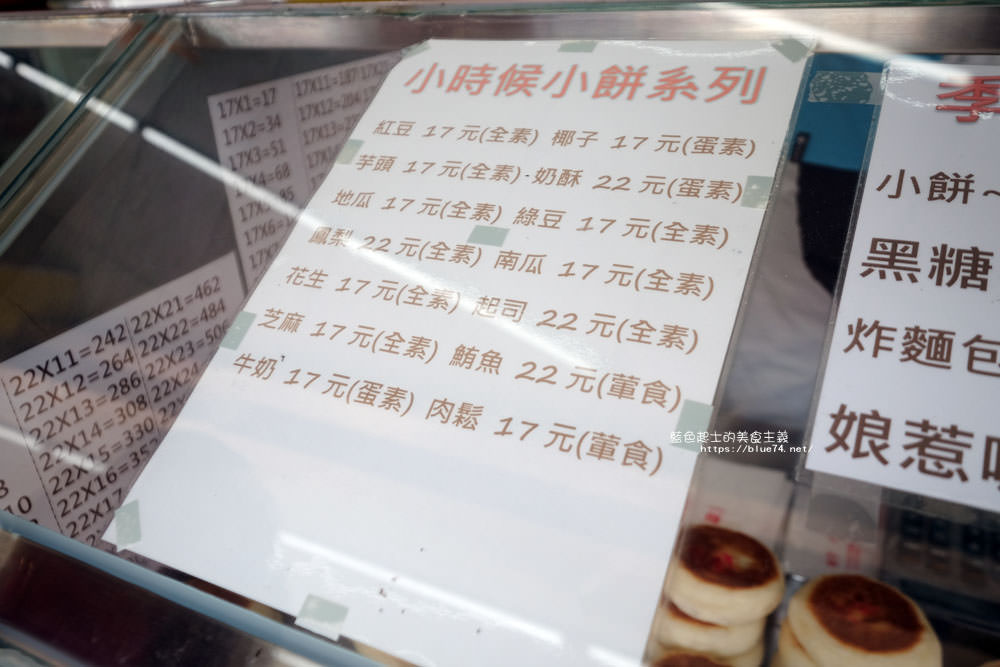 小時候小餅系列
紅豆 17元(全素) 椰子 17元(蛋素)
芋頭 17元(全素) 奶酥 22元(蛋素)
地瓜 17元(全素) 綠豆 17元(全素)
鳳梨 22元(全素) 南瓜 17元(全素)
花生 17元(全素) 起司 22元(全素)
芝麻 17元(全素) 鮪魚 22元(葷食)
牛奶 17元(蛋素) 肉鬆 17元(葷食)
17X1=17
17X2=34
17X3=51
17X4=68
17X11=187
22X11=242
22X12=264
22X13=286
22X14=308
22X15=330
22X21=462
22X22=484
季
小餅~
黑糖
炸麵包
娘惹
藍色起士的美食主義
https://blue74.net/